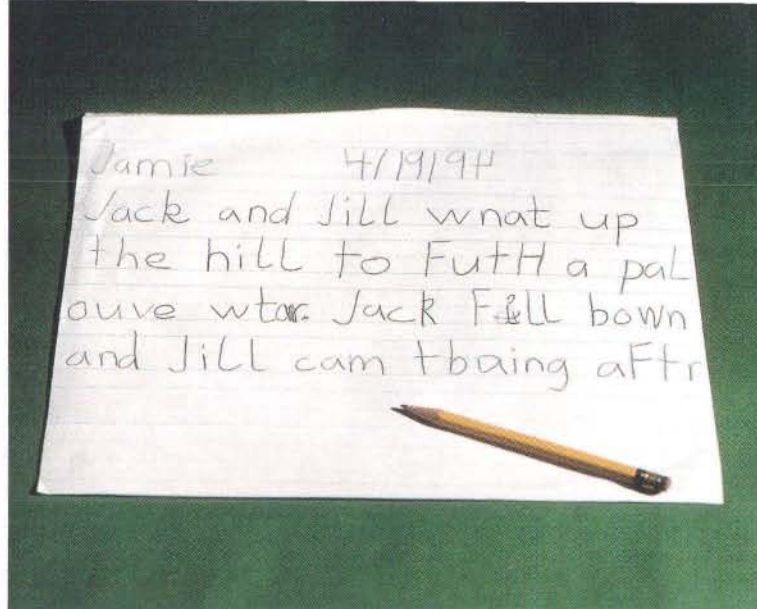 Jamie 4/19/94
Jack and Jill wnat up
the hill to FutH a paL
ouve wtar. Jack Fell bown
and Jill cam tbaing aFtr